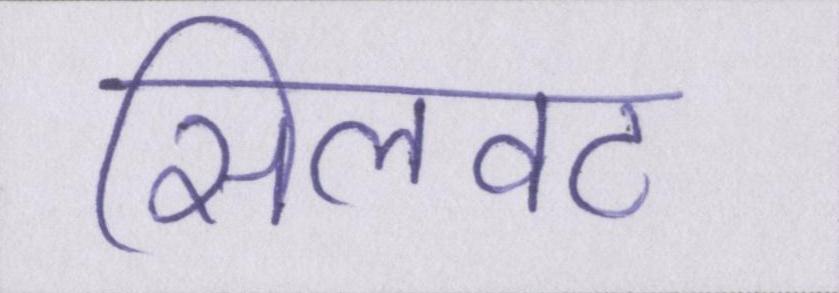 सिलवट